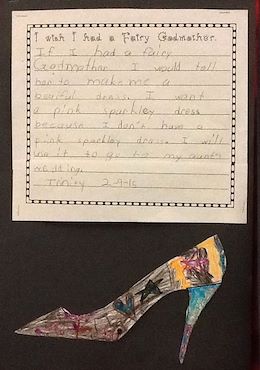 I wish I had a Fairy Godmother.
If I had a fairy
Godmother I would tell
her to make me a
beutiful dress. I want
a pink sparkley dress
because I don't have a
pink sparkley dress. I will
use it to go to my aunt's
wedding.
Trinity 2-9-16